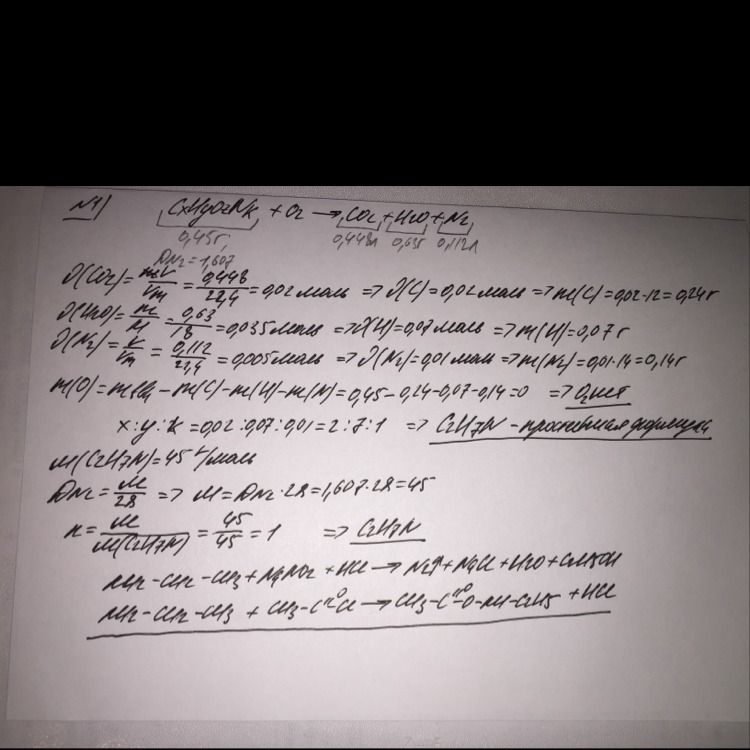 №1)
CxHyOzNk + O2 → CO2 + H2O + N2
0,45г 0,448л 0,63г 0,112л
DN2 = 1,607
ν(CO2) = V/Vm = 0,448/22,4 = 0,02 моль => ν(C) = 0,02 моль => m(C) = 0,02·12 = 0,24г
ν(H2O) = m/M = 0,63/18 = 0,035 моль => ν(H) = 0,07 моль => m(H) = 0,07г
ν(N2) = V/Vm = 0,112/22,4 = 0,005 моль => ν(N2) = 0,01 моль => m(N2) = 0,01·14 = 0,14г
m(O) = – m(C) – m(H) – m(N) = 0,45 – 0,24 – 0,07 – 0,14 = 0 => O2 нет
x : y : k = 0,02 : 0,07 : 0,01 = 2 : 7 : 1 => C2H7N – простейшая формула
M(C2H7N) = 45 г/моль
DN2 = M/28 => M = DN2 · 28 = 1,607 · 28 = 45
n = M/M(C2H7N) = 45/45 = 1 => C2H7N
NH2–CH2–CH3 + NaNO2 + HCl → N2↑ + NaCl + H2O + C2H5OH
NH2–CH2–CH3 + CH3–C=O Cl → CH3–C=O–O–NH–C2H5 + HCl